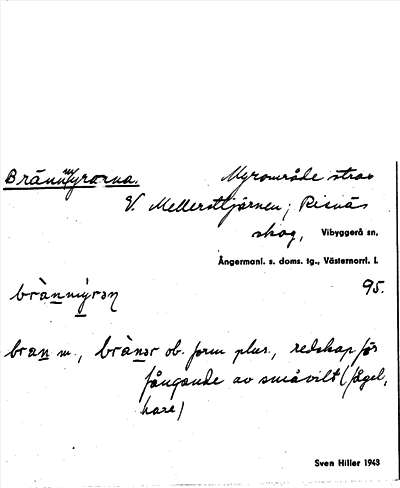 Brännmyrarna. Myrområde strax
V. Mellersttjärnen; Risnäs
skog, Vibyggerå sn,
Ångermanl. s. doms. tg., Västernorrl. l.
95.
brànnmýrən
bran m., brànər ob. form plur., redskap för
fångande av småvilt (fågel,
hare)
Sven Hiller 1943